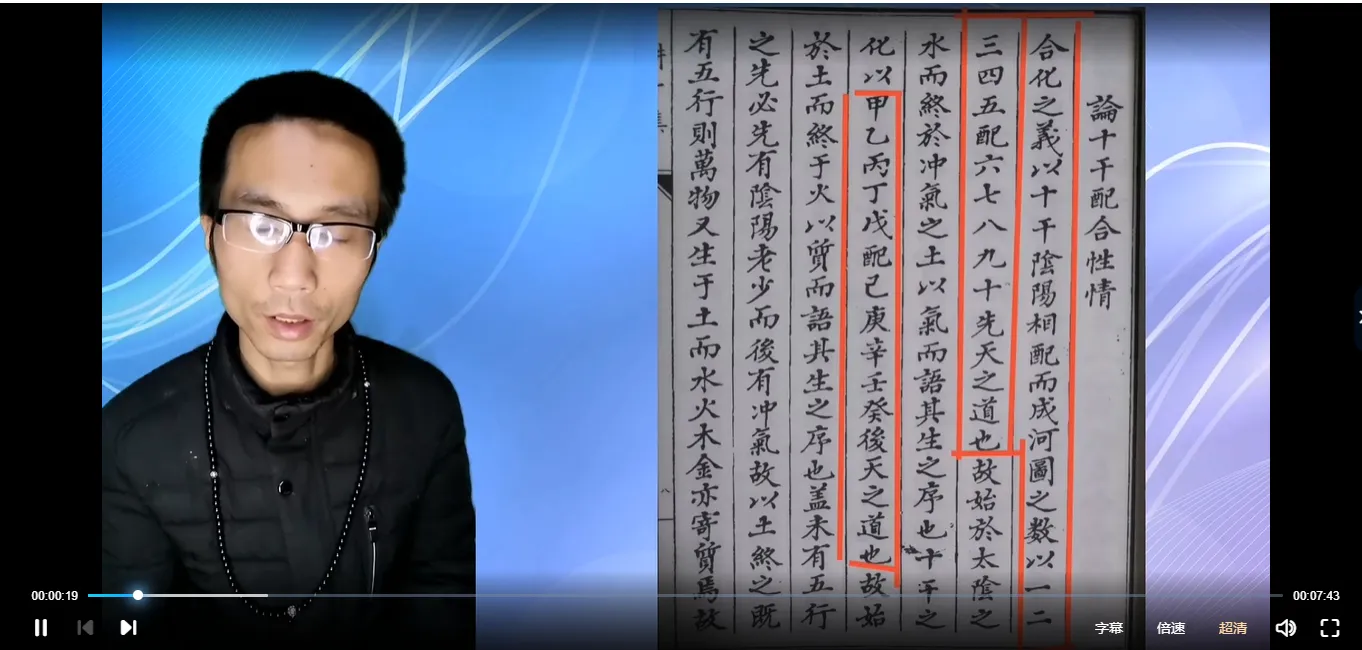 論十干配合性情
合化之義以十干陰陽相配而成河圖之数以一二
三四五配六七八九十先天之道也故始於太陰之
水而終於冲氣之土以氣而語其生之序也十干之
化以甲乙丙丁戊配己庚辛壬癸後天之道也故始
於土而終于火以質而語其生之序也盖未有五行
之先必先有陰陽老少而後有冲氣故以土終之既
有五行則萬物又生于土而水火木金亦寄質焉故
00:00:19
00:07:43
字幕 倍速 超清